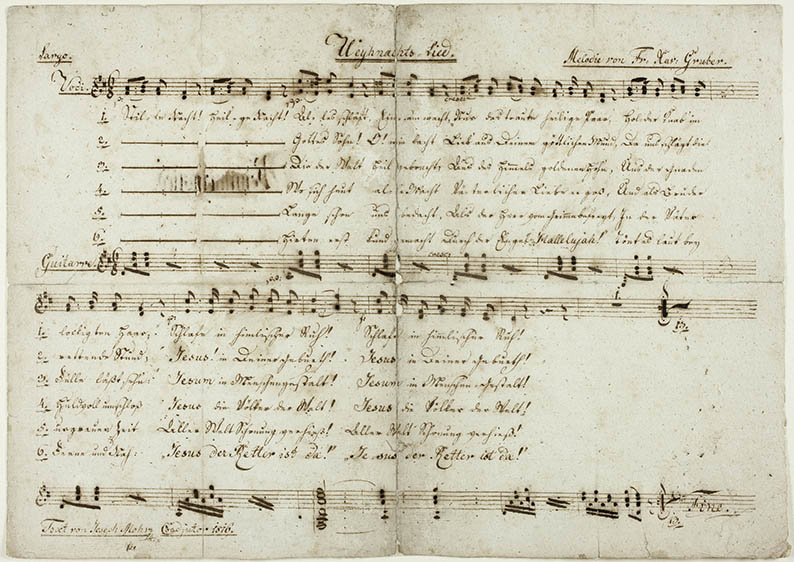 Largo.
Weyhnachts-Lied.
Melodie von Fr. Xav. Gruber.
Voci.
cresc:
1. Stille Nacht! Heilige Nacht! Alles schläft, Einsam wacht, Nur das traute heilige Paar, Holder Knab' im
2. Gottes Sohn! O! wie lacht Lieb' aus Deinem göttlichen Mund, Da uns schlägt die
3. Die der Welt Heil gebracht, Aus des Himmels goldenen Höhn, Aus der Gnaden
4. Wo sich heut alle Macht Väterlicher Liebe ergoß, Und als Bruder
5. Lange schon uns bedacht, Als der Herr vom Grimme befreyt, In der Väter
6. Hirten erst kund gemacht Durch der Engel Hallelujah! Tönt es laut bey
Guitarre.
cresc:
1. lockigten Haar; Schlafe in himmlischer Ruh! Schlafe in himmlischer Ruh!
2. rettende Stund; Jesus! in Deiner Geburth! Jesus in Deiner Geburth!
3. Fülle läßt sehn: Jesum in Menschengestalt! Jesum in Menschengestalt!
4. Huldvoll umschloß Jesus die Völker der Welt! Jesus die Völker der Welt!
5. urgrauer Zeit Aller Welt Schonung verhieß! Aller Welt Schonung verhieß!
6. Ferne und Nah: „Jesus der Retter ist da!" „Jesus der Retter ist da!"
Fine.
Text von Joseph Mohr Coadjutor 1816.